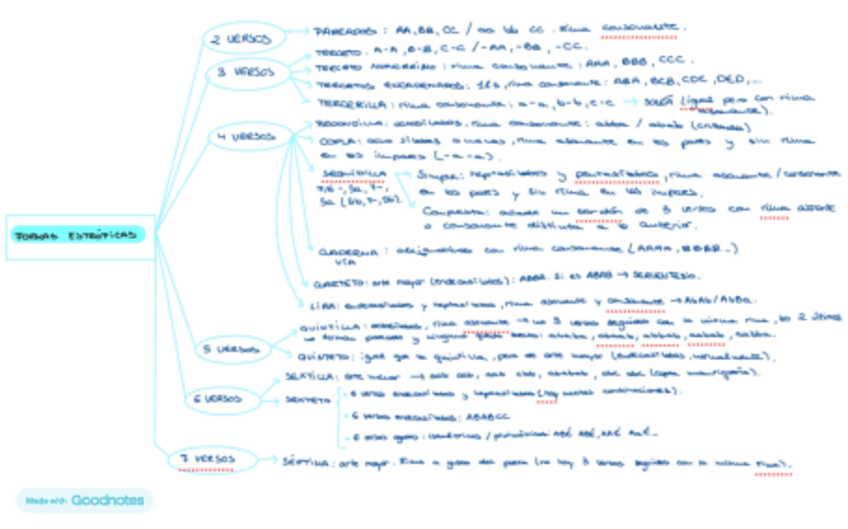 2 VERSOS
PAREADOS: AA, BB, CC / aa bb cc. rima consonante.
3 VERSOS
TERCETO: A-A, B-B, C-C / -AA, -BB, -CC.
TERCETO MONORRIMO: rima consonante: AAA, BBB, CCC.
TERCETOS ENCADENADOS: 11s, rima consonante: ABA, BCB, CDC, DED,...
TERCERILLA: rima consonante: a-a, b-b, c-c → SOLEÁ (igual pero con rima
asonante).
4 VERSOS
REDONDILLA: octosílabos, rima consonante: abba / abab (cruzada)
COPLA: octosílabos o menos, rima asonante en los pares y sin rima
en los impares (-a-a).
SEGUIDILLA
Simple: heptasílabos y pentasílabos, rima asonante / consonante
en los pares y sin rima en los impares.
Compuesta: añade un bordón de 3 versos con rima asonante
o consonante distinta a la anterior.
CUADERNA
VÍA
: alejandrinos con rima consonante (AAAA, BBBB...)
CUARTETO: arte mayor (endecasílabos): ABBA. Si es ABAB → SERVENTESIO.
LIRA: endecasílabos y heptasílabos, rima asonante y consonante → AbAb / AbBa.
FORMAS ESTRÓFICAS
5 VERSOS
QUINTILLA: octosílabos, rima asonante → no 3 versos seguidos con la misma rima, los 2 últimos
no forman pareado y ninguno queda
QUINTETO: igual que la quintilla, pero de arte mayor (endecasílabos, normalmente).
6 VERSOS
SEXTILLA: arte menor → aab aab, aab ccb, ababab, abc abc (copla manriqueña).
SEXTETO
6 versos endecasílabos y heptasílabos (hay muchas combinaciones).
6 versos endecasílabos: ABABCC
6 versos agudos:
7 VERSOS
SÉPTIMA: arte mayor. Rima a gusto del poeta (no hay 3 versos seguidos con la misma rima).
Made with Goodnotes